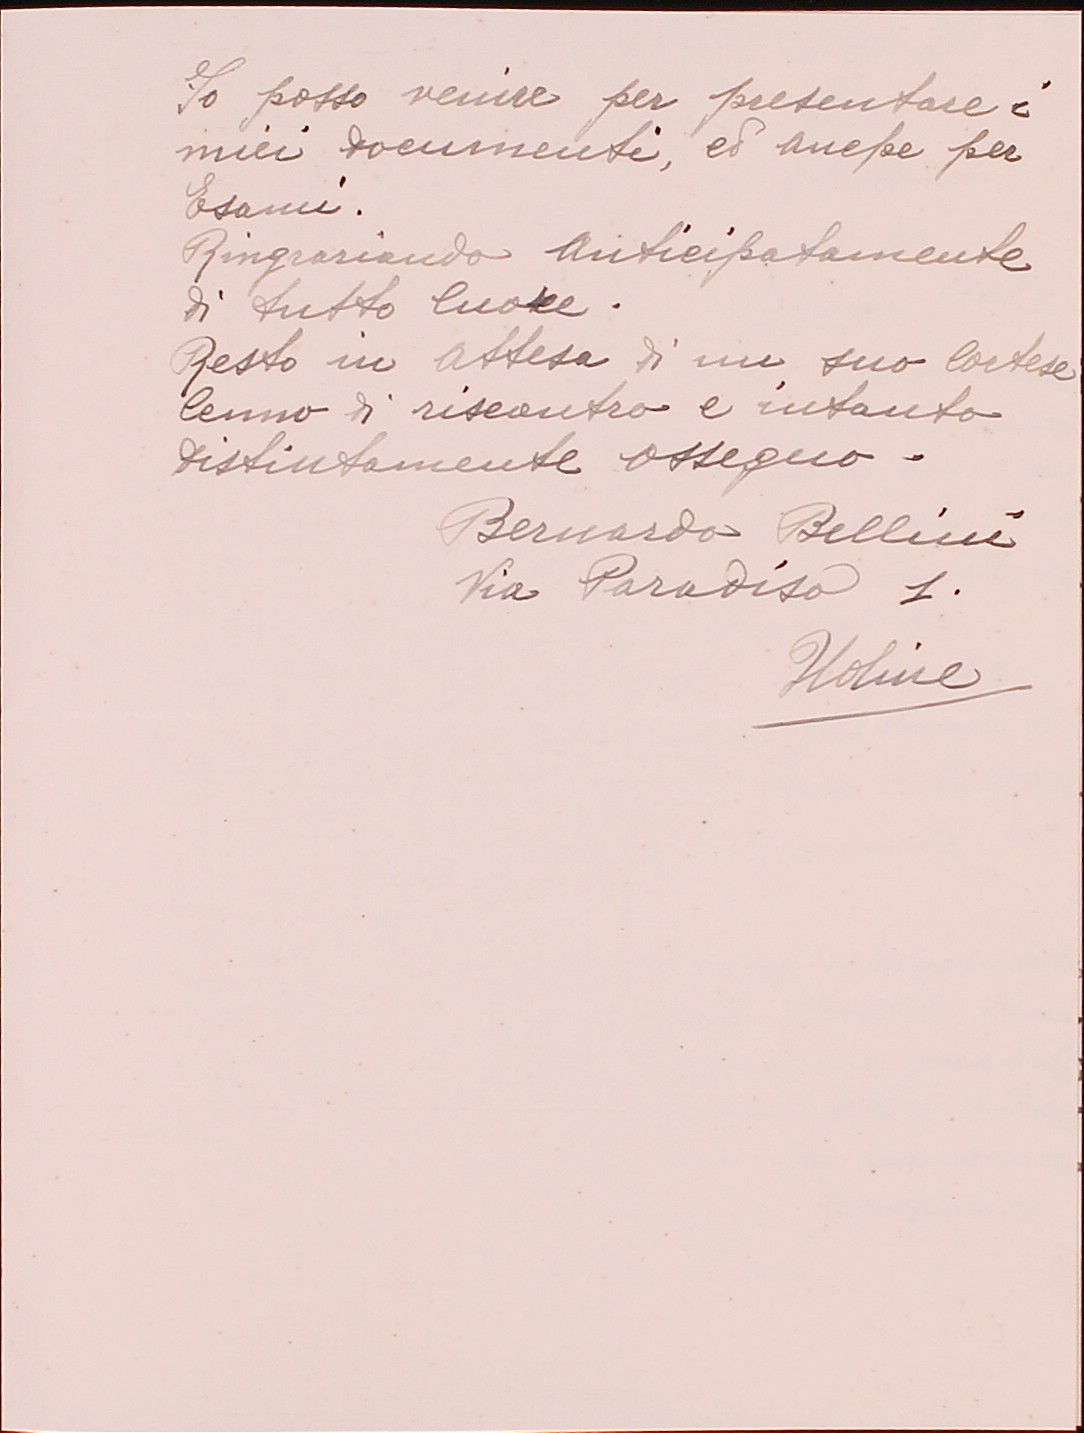 Io posso venire per presentare i
miei documenti, ed anche per
Esami.
Ringraziando Anticipatamente
di tutto Cuore.
Resto in Attesa di un suo Cortese
Cenno di riscontro e intanto
distintamente ossequio.
Bernardo Bellini
Via Paradiso 1.
Udine